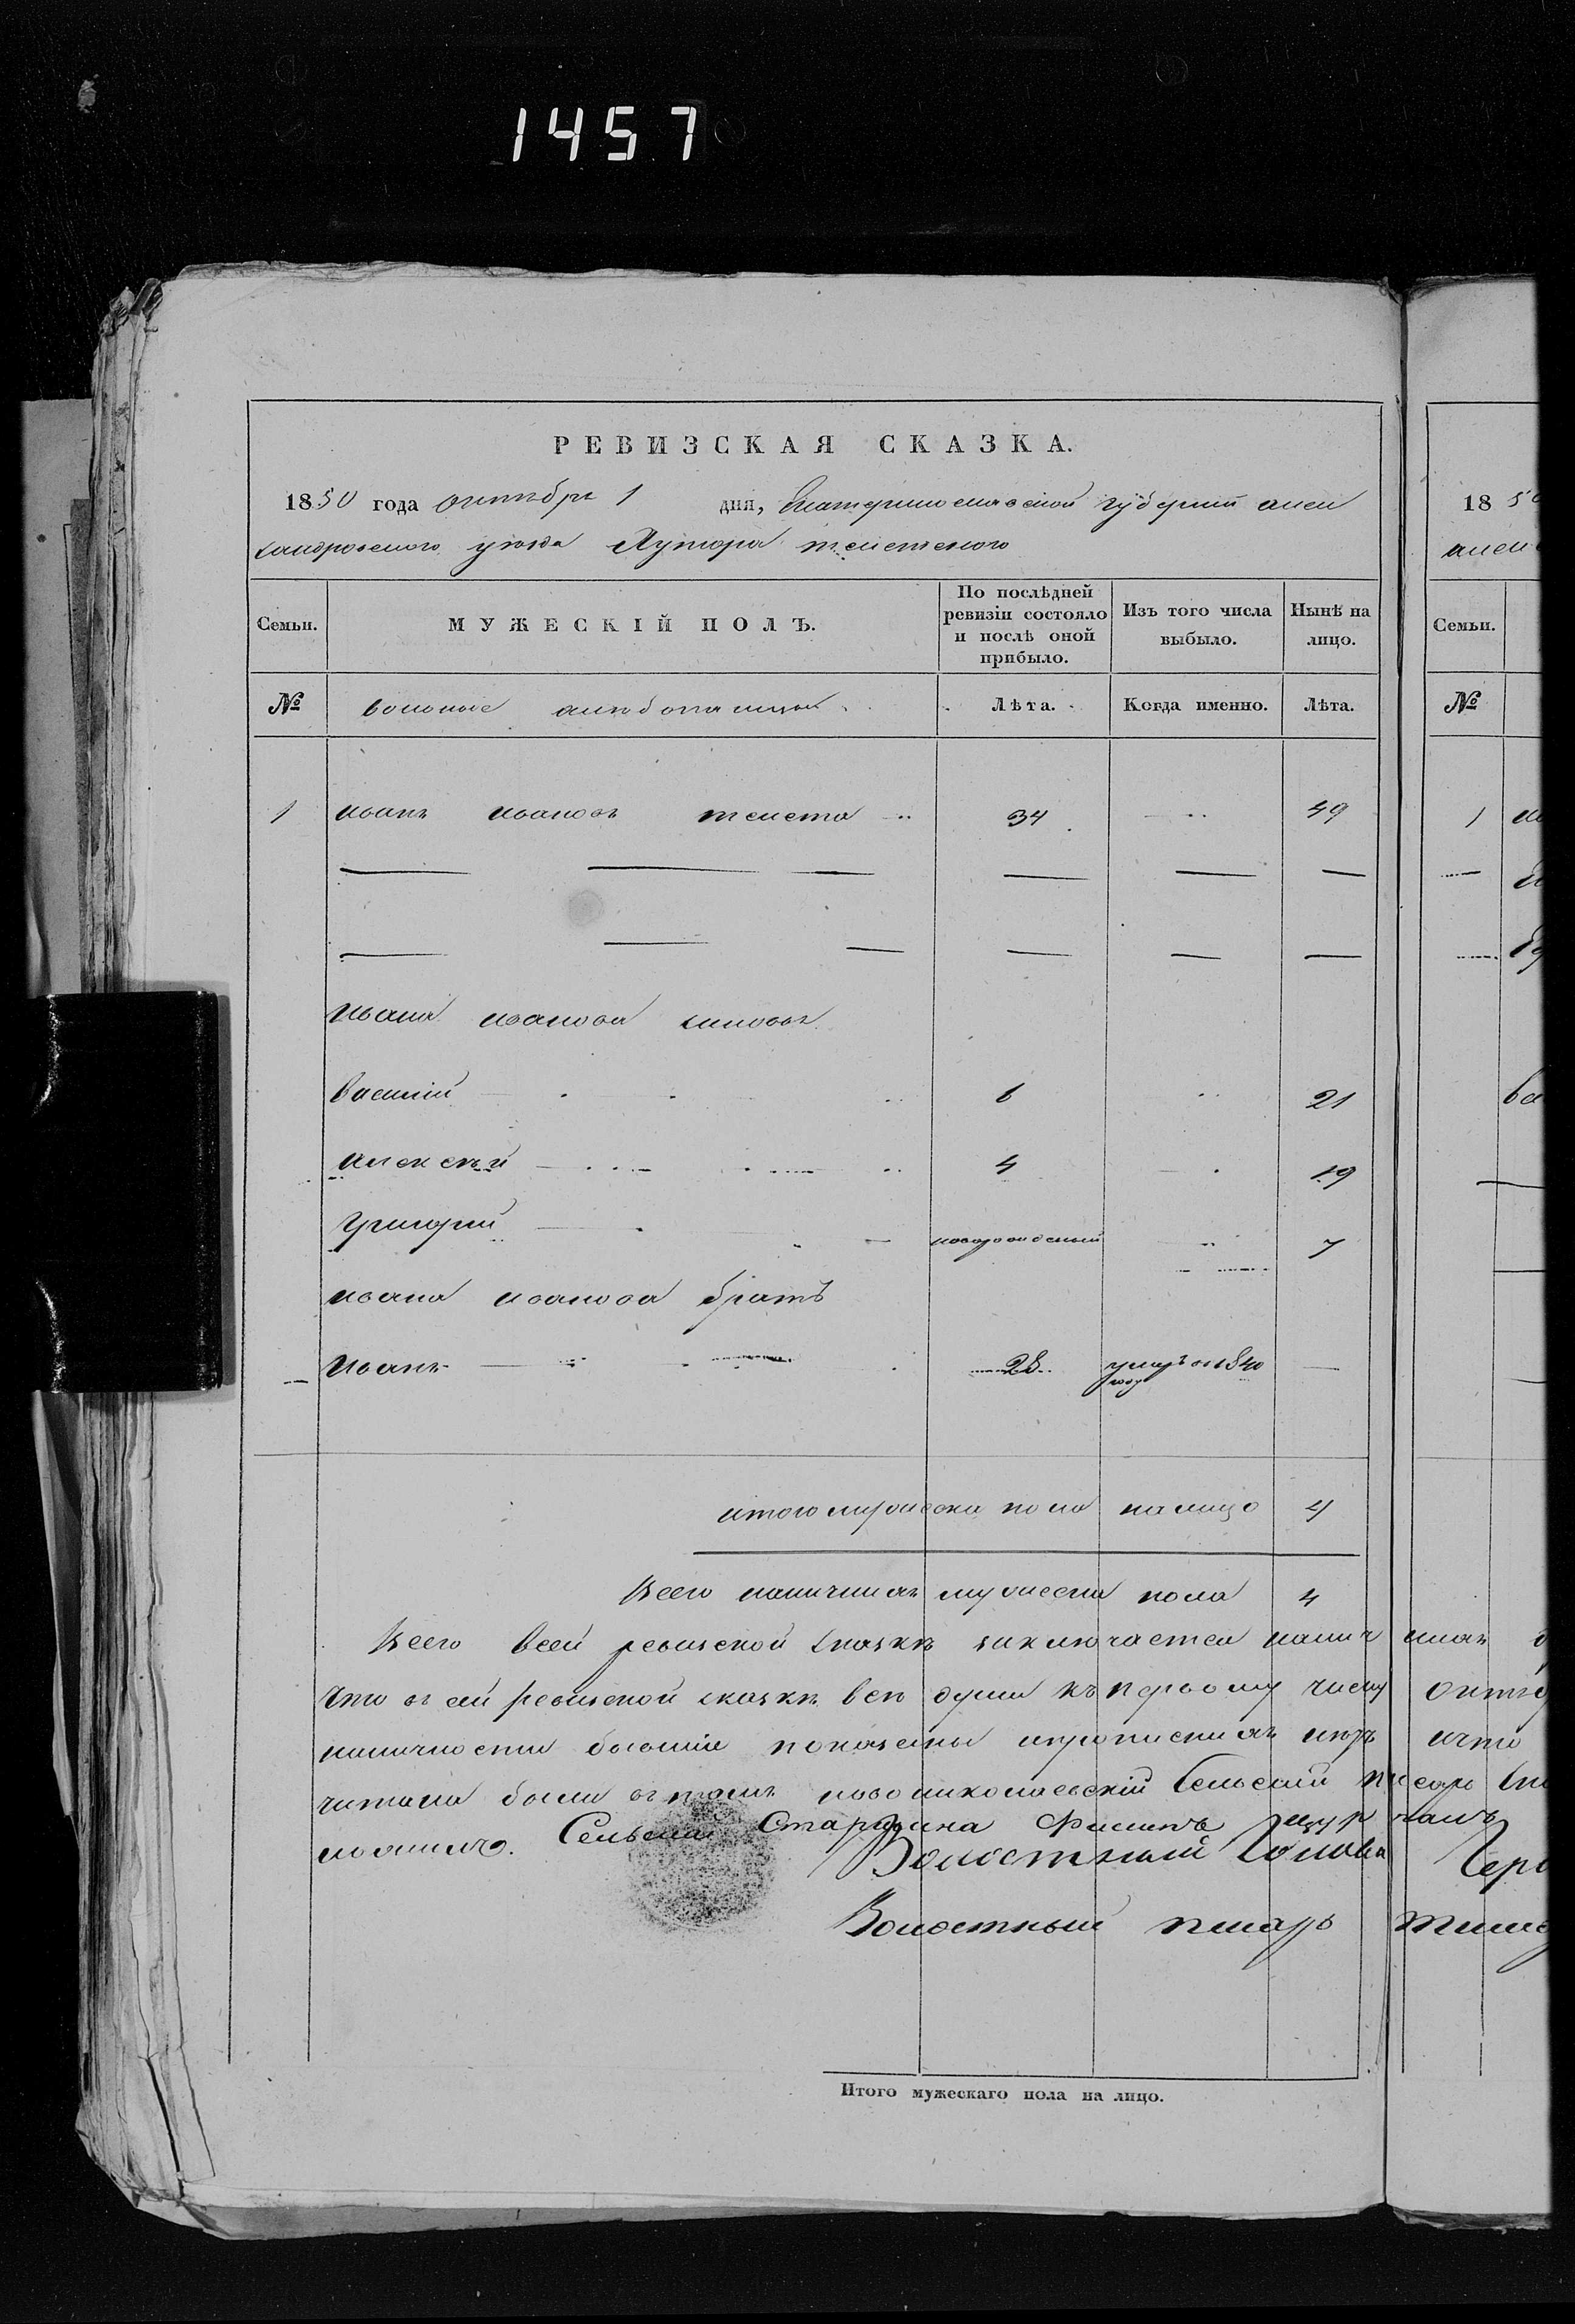 1457
РЕВИЗСКАЯ СКАЗКА.
1850 года октября 1 дня, Екатеринославской губернии алек
сандровского уезда Хутора
18 50
алек
Семьи.
МУЖЕСКІЙ ПОЛЪ.
По послѣдней ревизіи состояло и послѣ оной прибыло.
Изъ того числа выбыло.
Нынѣ на лицо.
Семьи.
№
вольные
Лѣта.
Когда именно.
Лѣта.
№
1 иванъ ивановъ 34 49
1
ивана иванова сыновья
василий 6 21
алексѣй 4 19
григорий новорожденный 7
ивана иванова братъ
иванъ 28 умеръ въ 1840 году
итого мужеска пола на лицо 4
Всего наличныхъ мужеска пола 4
Всего всей ревизской сказкѣ заключается налич ныхъ
Что въ сей ревизской сказкѣ всѣ души къ первому числу
наличности бывшие показаны и прописных нѣтъ и что
читана были въ томъ новониколаевский Сельский писарь
Сельский Старшина Филипъ
Волостный Голова
Волостный писарь
Итого мужескаго пола на лицо.